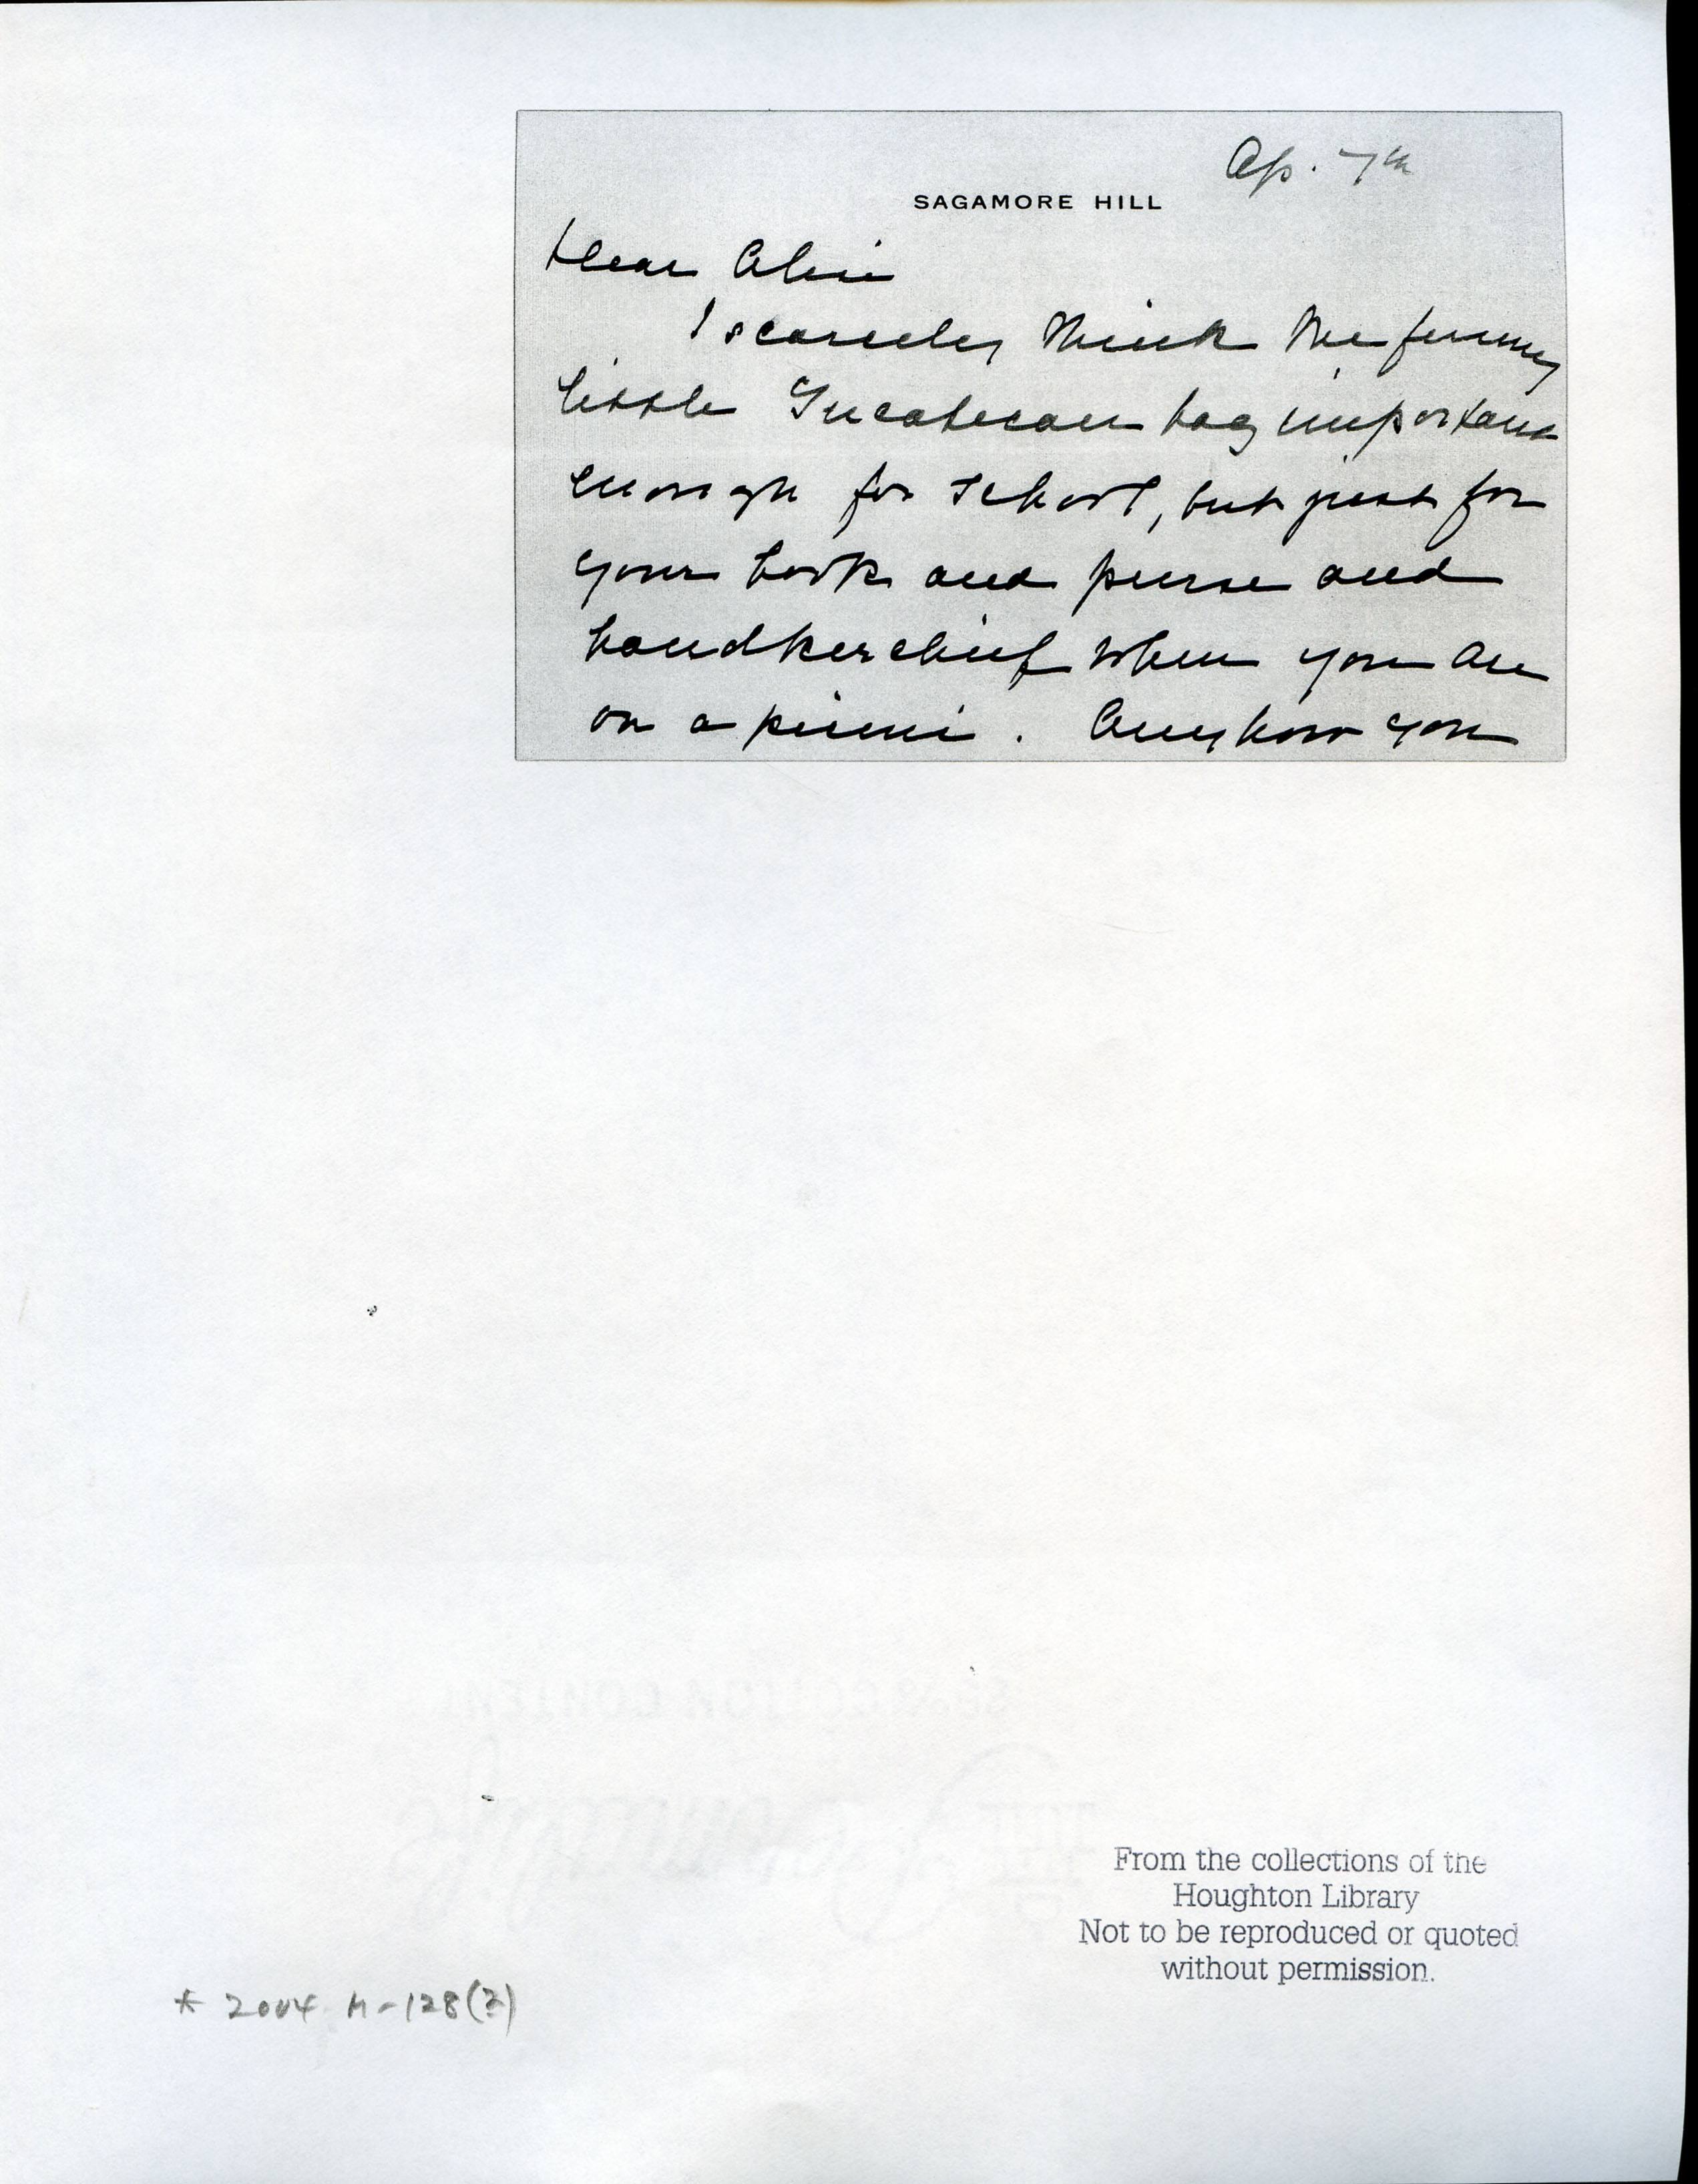 Ap. 7th
SAGAMORE HILL
Dear Alice
I scarcely think the funny
little Yucatecan bag important
enough for school, but just for
your book and purse and
handkerchief when you are
on a picnic. Anyhow you
From the collections of the
Houghton Library
Not to be reproduced or quoted
without permission.
* 2004 M-128(3)